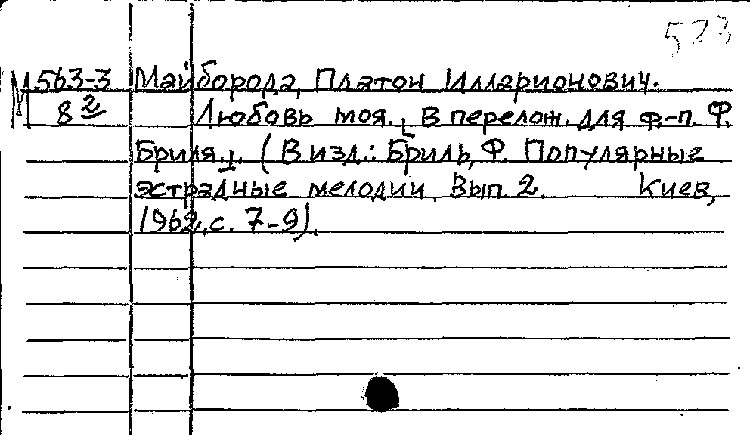 523
М 563-3 Майборода, Платон Илларионович.
8 2 Любовь моя. [В перелож. для ф.-п. Ф.
Бриля.]. (В изд.: Бриль, Ф. Популярные
эстрадные мелодии. Вып. 2. Киев,
1962, с. 7-9).